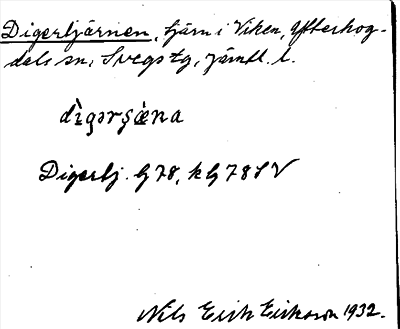 Digertjärnen, tjärn i Viken, Ytterhog-
dals sn, Svegs tg, Jämtl. l.
dìgərʂæ̀na
Digertj. G 78, k G 78 S V
Nils Erik Erikson 1932.